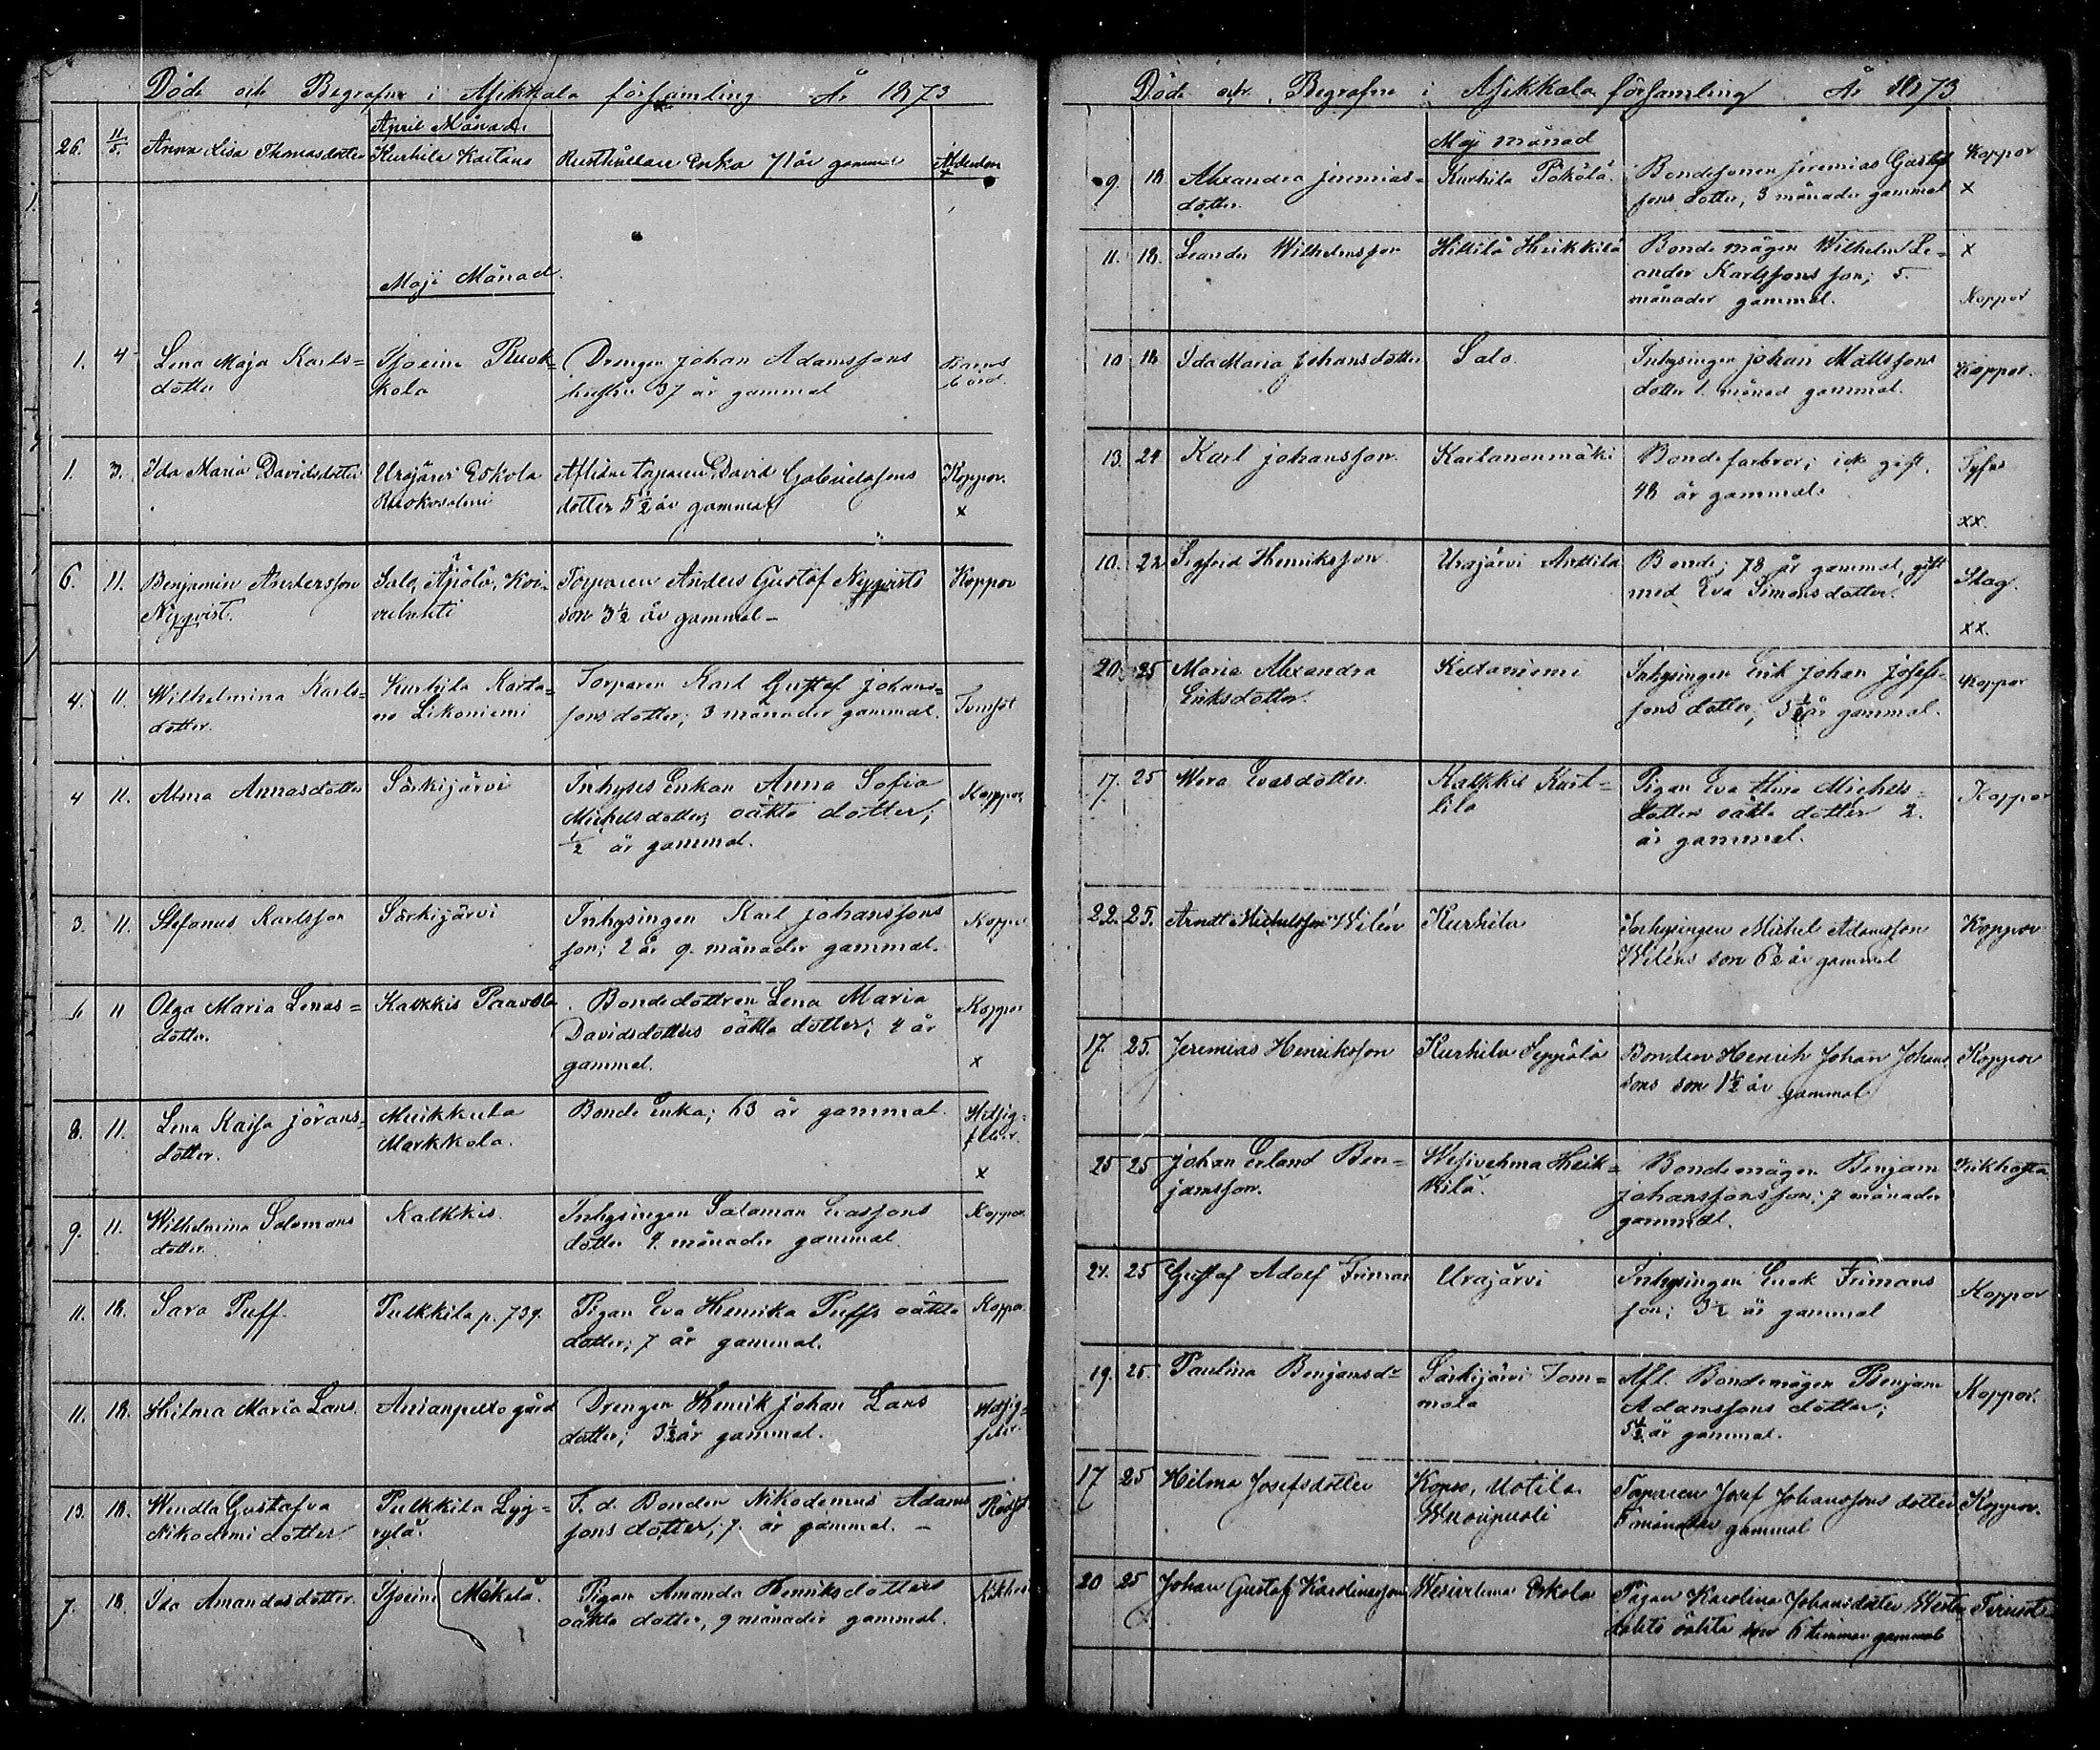 Döde och Begrafne i Asikkala församling År 1873
April Månad.
26. 11/5. Anna Lisa Thomasdotter Kurhila Kartano Rusthållare Enka 71 år gammal
Maji Månad.
1. 4 Lena Maja Karls= Drengen Johan Adamssons Barns
dotter kola hustru 37 år gammal börd.
1. 3. Ida Maria Davidsdotter Urajärvi Eskola Aflidne torparen David Gabrielssons Koppor.
dotter 5 1/2 år gammal x
6. 11. Benjamin Andersson Salo, Äijölä, Koi= Torparen Anders Gustaf Nyqvists Koppor
Nyqvist. son 3 1/2 år gammal –
4. 11. Wilhelmina Karls= Kurhila Karta= Torparen Karl Gustaf Johans=
dotter. no Likoniemi sons dotter; 3 månader gammal.
4 11. Alma Annasdotter Särkijärvi Inhyses Enkan Anna Sofia Koppor
Michelsdotters oäkta dotter;
1/2 år gammal.
3. 11. Stefanus Karlsson Särkijärvi Inhysingen Karl Johanssons Koppor
son; 2 år 9. månader gammal.
11 Olga Maria Lenas= Kalkkis Paavola Bondedottren Lena Maria Koppor
dotter. Davidsdotters oäkta dotter; 4 år
gammal. x
8. 11. Lena Kaisa Jörans= Bonde Enka; 63 år gammal. Hetsig=
dotter. Markkola. feber.
x
9. 11. Wilhelmina Salomons Kalkkis. Inhysingen Salomon Evassons Koppor.
dotter dotter 9. månader gammal.
11. 18. Sara Puff. Pulkkila p. 739. Pigan Eva Henrika Puffs oäkta Koppor
dotter; 7 år gammal.
11. 18. Hilma Maria Lans. gård Drengen Henrik Johan Lans Hetsig=
dotter; 3 1/2 år gammal. feber
13. 18. Wendla Gustafva Pulkkila Lyy= F. d. Bonden Nikodemus Adams
Nikodemidotter rylä. sons dotter; 7. år gammal. –
7. 18. Ida Amandasdotter. Mäkelä. Pigan Amanda Henriksdotters
oäkta dotter, 9 månader gammal.
Döde och Begrafne i Asikkala församling År 1873
Maji månad
9. 18 Alexandra Jeremias= Kurhila Bondesonen Jeremias Gustaf Koppor
dotter. sons dotter, 3 månader gammal x
11. 18. Leander Wilhelmsson Hillilä Heikkilä Bonde mågen Wilhelm Le= x
ander Karlssons son; 5.
månader gammal. Koppor
10 18 Ida Maria Johansdotter Salo Inhysingen Johan Mattssons Koppor.
dotter 1. månad gammal.
13. 24 Karl Johansson. Kartanonmäki Bondefarbror; ick gift, Tyfus
48 år gammal. xx.
10. 22 Sigfrid Henriksson Urajärvi Anttila Bonde; 78 år gammal, gift Slag.
med Eva Simonsdotter. xx.
20. 25 Maria Alexandra Keltaniemi Inhysingen Erik Johan Josefs= Koppor
Eriksdotter. sons dotter, 3 1/2 år gammal.
17. 25 Wera Evasdotter. Kalkkis Pigan Eva Michels= Koppor
lila dotters oäkta dotter 2.
år gammal.
22. 25. Arndt Michelsson Wilén Kurhila Inhysingen Michel Adamsson Koppor
Wiléns son 6 1/2 år gammal
17. 25. Jeremias Henriksson Kurhila Seppälä Bonden Henrik Johan Johans Koppor
sons son 1 1/2 år gammal
25 25 Johan Erland Ben= Wesivehma Heik= Bondemågen Benjam Kikhosta
jamsson. kilä. Johanssons son; 7 månader
gammal.
24. 25 Gustaf Adolf Friman Urajärvi Inhysingen Enok Frimans Koppor
son; 3 1/2 år gammal
19. 25. Paulina Benjamsdr Särkijärvi Tom= Afl. Bondemågen Benjam Koppor.
mola Adamssons dotter;
5 1/2 år gammal.
17 25 Hilma Josefsdotter Uotila Torparen Josef Johanssons dotter Koppor.
månader gammal
20 25 Johan Gustaf Karolinasson Wesivehma Eskola Pigan Karolina Johansdotter
oäkta son 6 timmar gammal